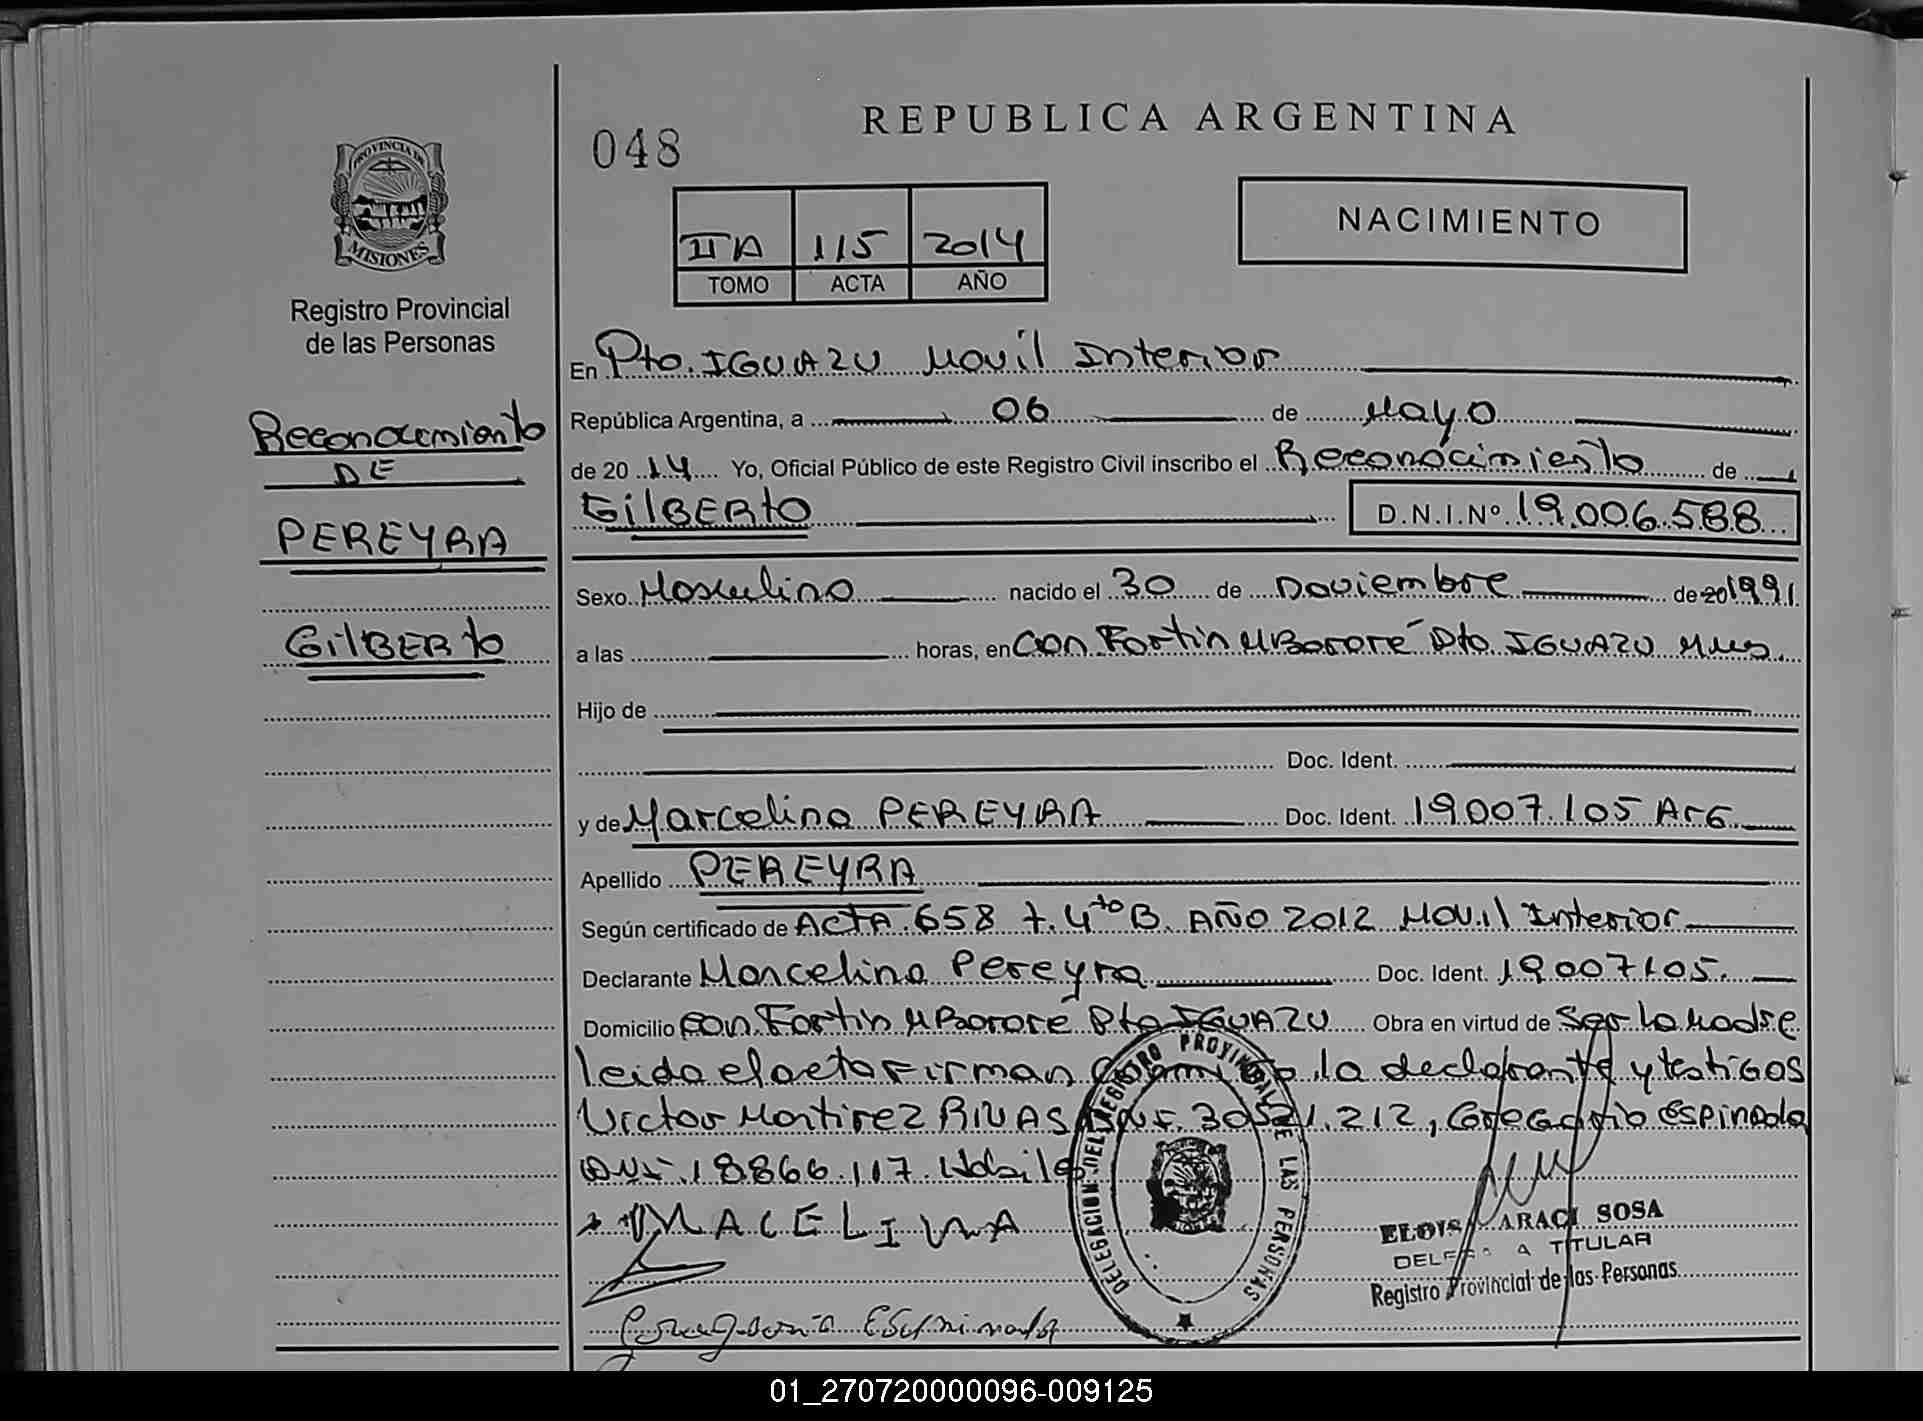 REPUBLICA ARGENTINA
048
NACIMIENTO
PROVINCIA DE
MISIONES
Registro Provincial
de las Personas
IIA 115 2014
TOMO ACTA AÑO
En Pto. IGUAZU Movil Interior
República Argentina, a 06 de Mayo
de 20 14 Yo, Oficial Público de este Registro Civil inscribo el Reconocimiento de
GilBERto D.N.I.Nº 19.006.588
Reconocimiento
DE
PEREYRA
GilBERto
Sexo Masculino nacido el 30 de Noviembre de 20 1991
a las horas, en Con Fortin MBororé Pto. IGUAZU Mnes.
Hijo de
Doc. Ident.
y de Marcelina PEREYRA Doc. Ident. 19.007.105 ArG
Apellido PEREYRA
Según certificado de ACTA 658 t. 4to B. AÑO 2012 Movil Interior
Declarante Marcelina Pereyra Doc. Ident. 19.007105.
Domicilio Con Fortin MBororé Pto IGUAZU Obra en virtud de Ser la Madre
leida el acta Firman la declarante y testigos
Victor Martinez RIVAS 212, Gregorio Espinola
18.866.117.
MACELINA
DELEGACION DEL REGISTRO PROVINCIAL DE LAS PERSONAS
ARACI SOSA
TITULAR
Registro Provincial de las Personas
01_270720000096-009125